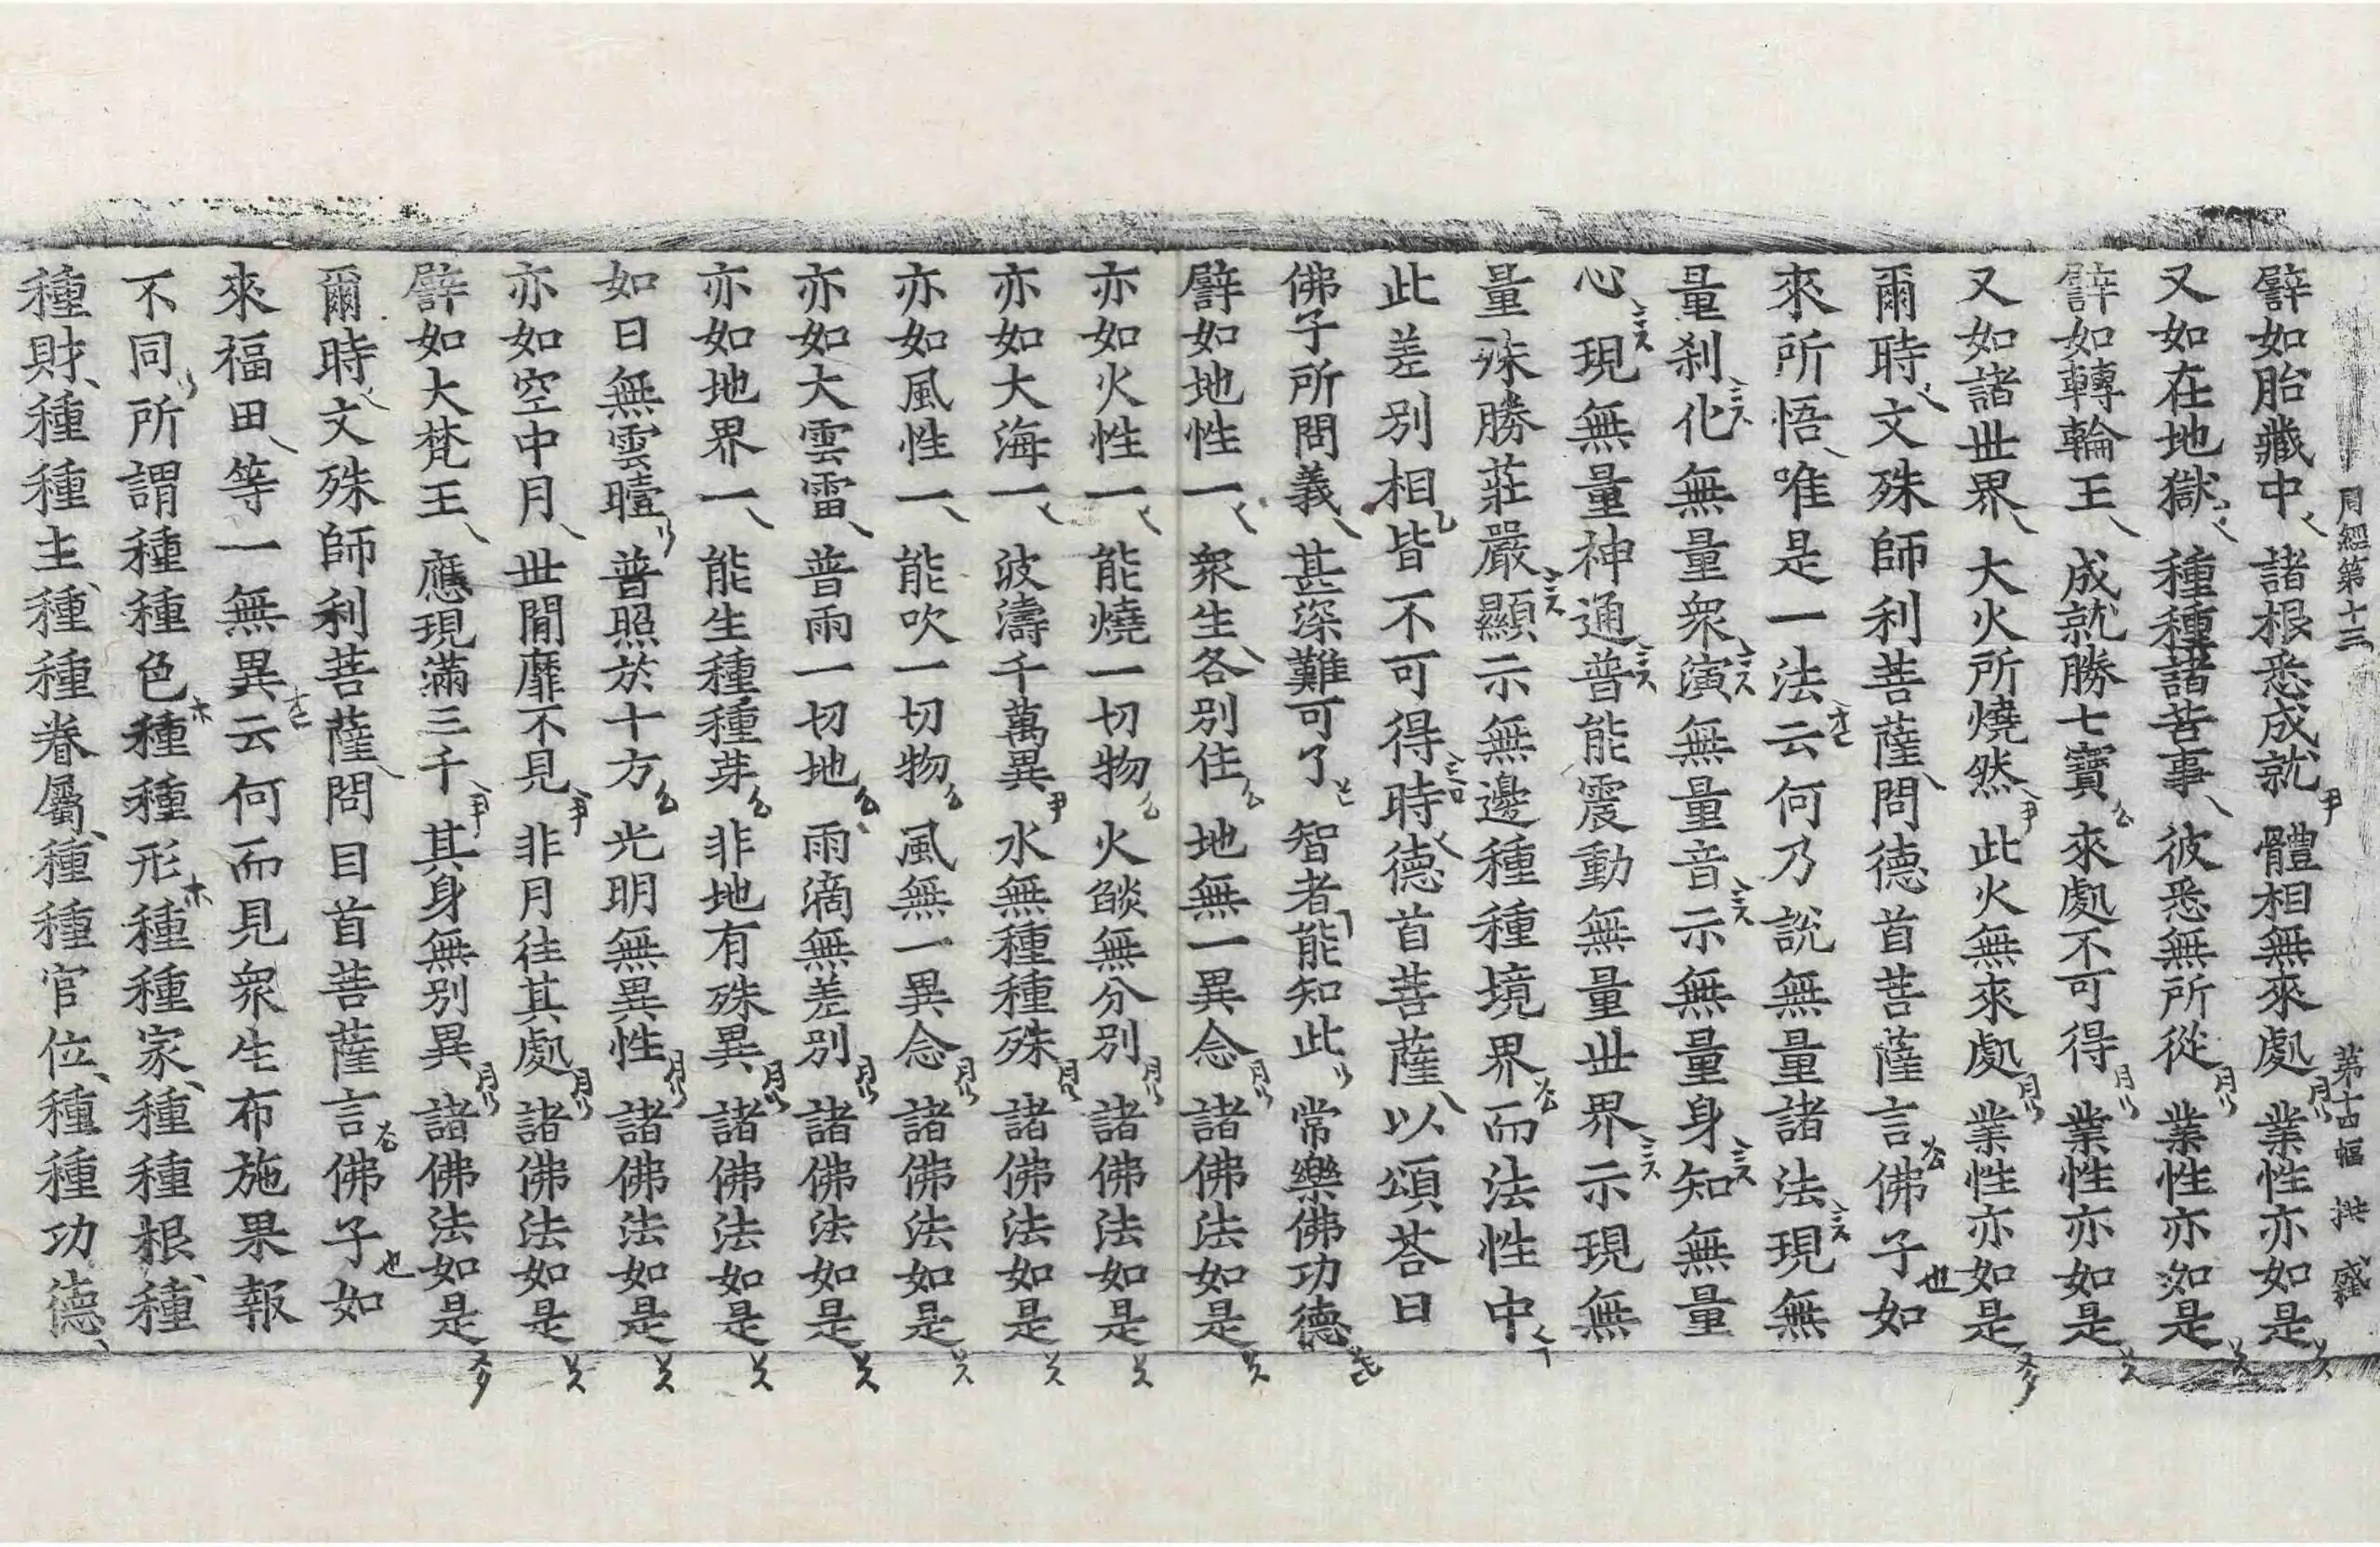 周經第十三 第十四幅 拱 盛
譬如胎藏中 諸根悉成就 體相無來處 業性亦如是
又如在地獄 種種諸苦事 彼悉無所從 業性亦如是
譬如轉輪王 成就勝七寶 來處不可得 業性亦如是
又如諸世界 大火所燒然 此火無來處 業性亦如是
爾時文殊師利菩薩問德首菩薩言佛子如
來所悟唯是一法云何乃說無量諸法現無
量刹化無量衆演無量音示無量身知無量
心現無量神通普能震動無量世界示現無
量殊勝莊嚴顯示無邊種種境界而法性中
此差別相皆不可得時德首菩薩以頌荅曰
佛子所問義 甚深難可了 智者能知此 常樂佛功德
譬如地性一 衆生各別住 地無一異念 諸佛法如是
亦如火性一 能燒一切物 火燄無分別 諸佛法如是
亦如大海一 波濤千萬異 水無種種殊 諸佛法如是
亦如風性一 能吹一切物 風無一異念 諸佛法如是
亦如大雲雷 普雨一切地 雨滴無差別 諸佛法如是
亦如地界一 能生種種芽 非地有殊異 諸佛法如是
如日無雲曀 普照於十方 光明無異性 諸佛法如是
亦如空中月 世閒靡不見 非月往其處 諸佛法如是
譬如大梵王 應現滿三千 其身無別異 諸佛法如是
爾時文殊師利菩薩問目首菩薩言佛子如
來福田等一無異云何而見衆生布施果報
不同所謂種種色種種形種種家種種根種
種財種種主種種眷屬種種官位種種功德